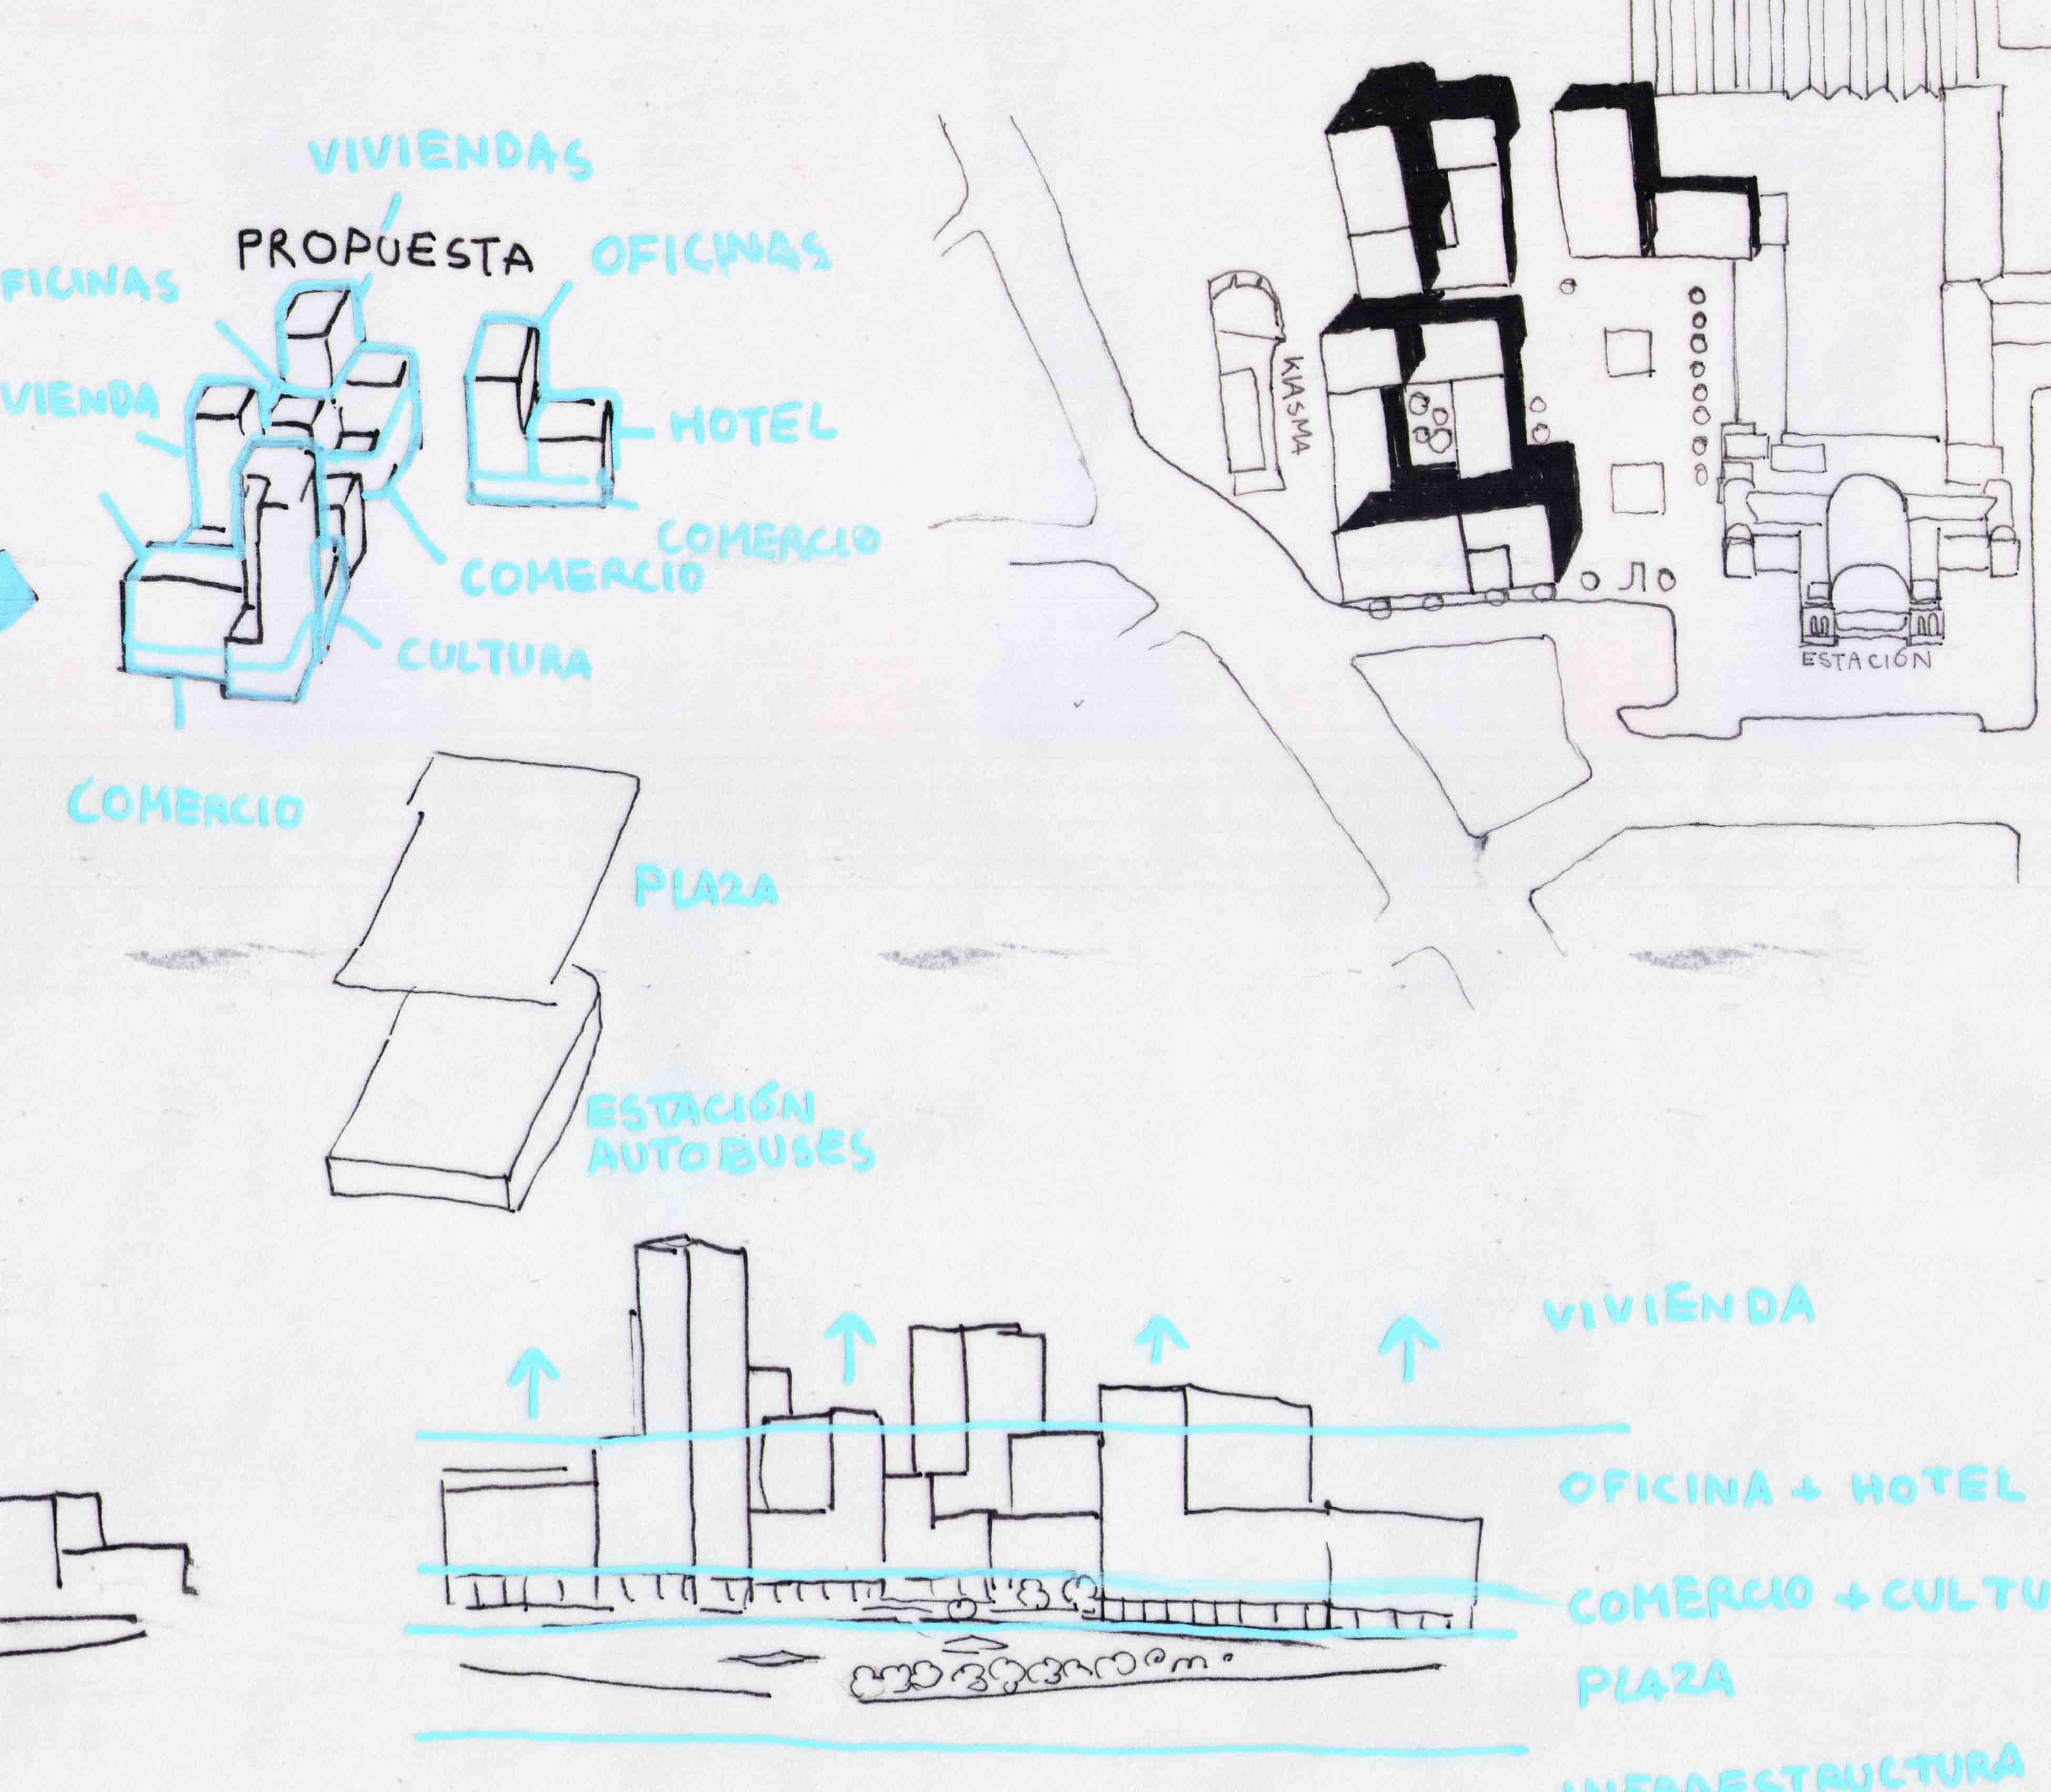 VIVIENDAS
PROPUESTA
OFICINAS
FICINAS
VIENDA
HOTEL
COMERCIO
COMERCIO
CULTURA
COMERCIO
KIASMA
ESTACIÓN
PLAZA
ESTACIÓN
AUTOBUSES
VIVIENDA
OFICINA + HOTEL
COMERCIO + CULTU
PLAZA
INFRAESTRUCTURA